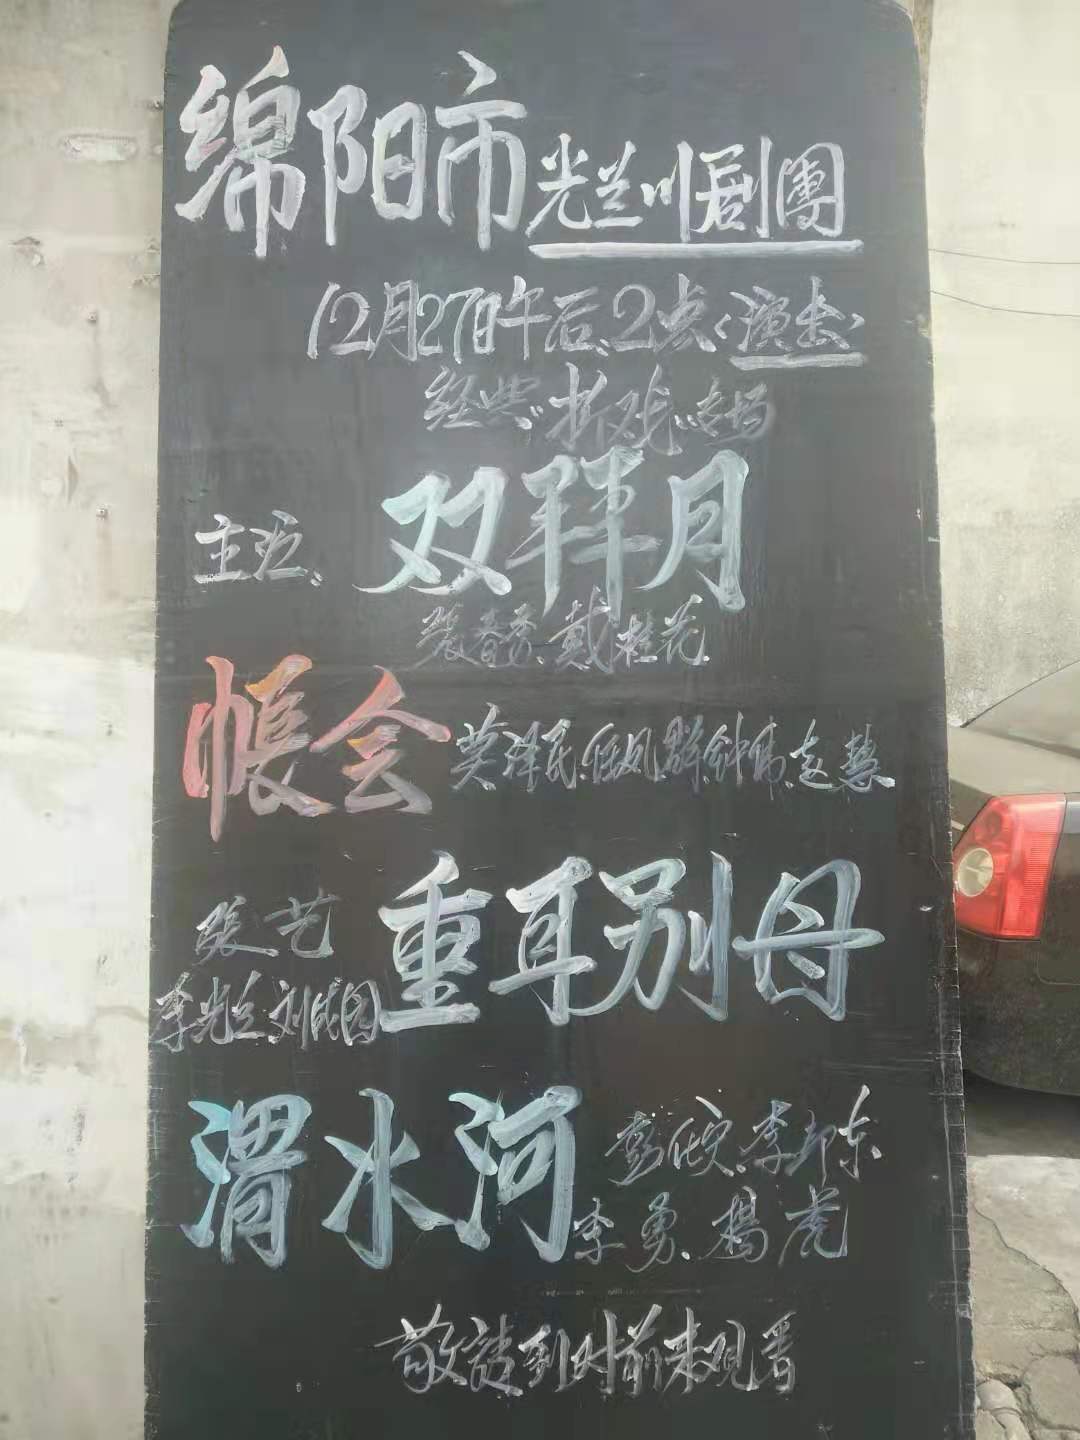 绵阳市光兰川剧團
12月27日午后、2点《演出》
经典“折戏”专场
主演、双拜月
張春秀、戴桂花
帳会 莫泽民、任凤群、钟伟、赵慧
張艺
李光兰 刘成国 重耳别母
渭水河 彭 李邦东
李勇、楊虎
敬請到时前来观看